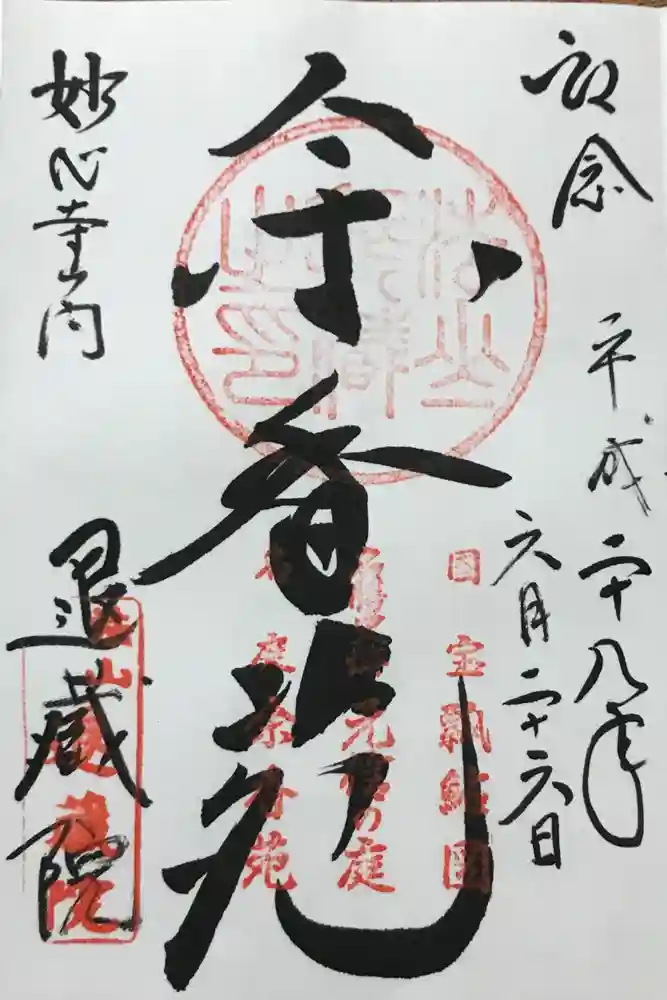 記念
平成二十八年
六月二十六日
余香苑
妙心寺山内
退蔵院
国宝瓢鮎図
元信の庭
名庭余香苑